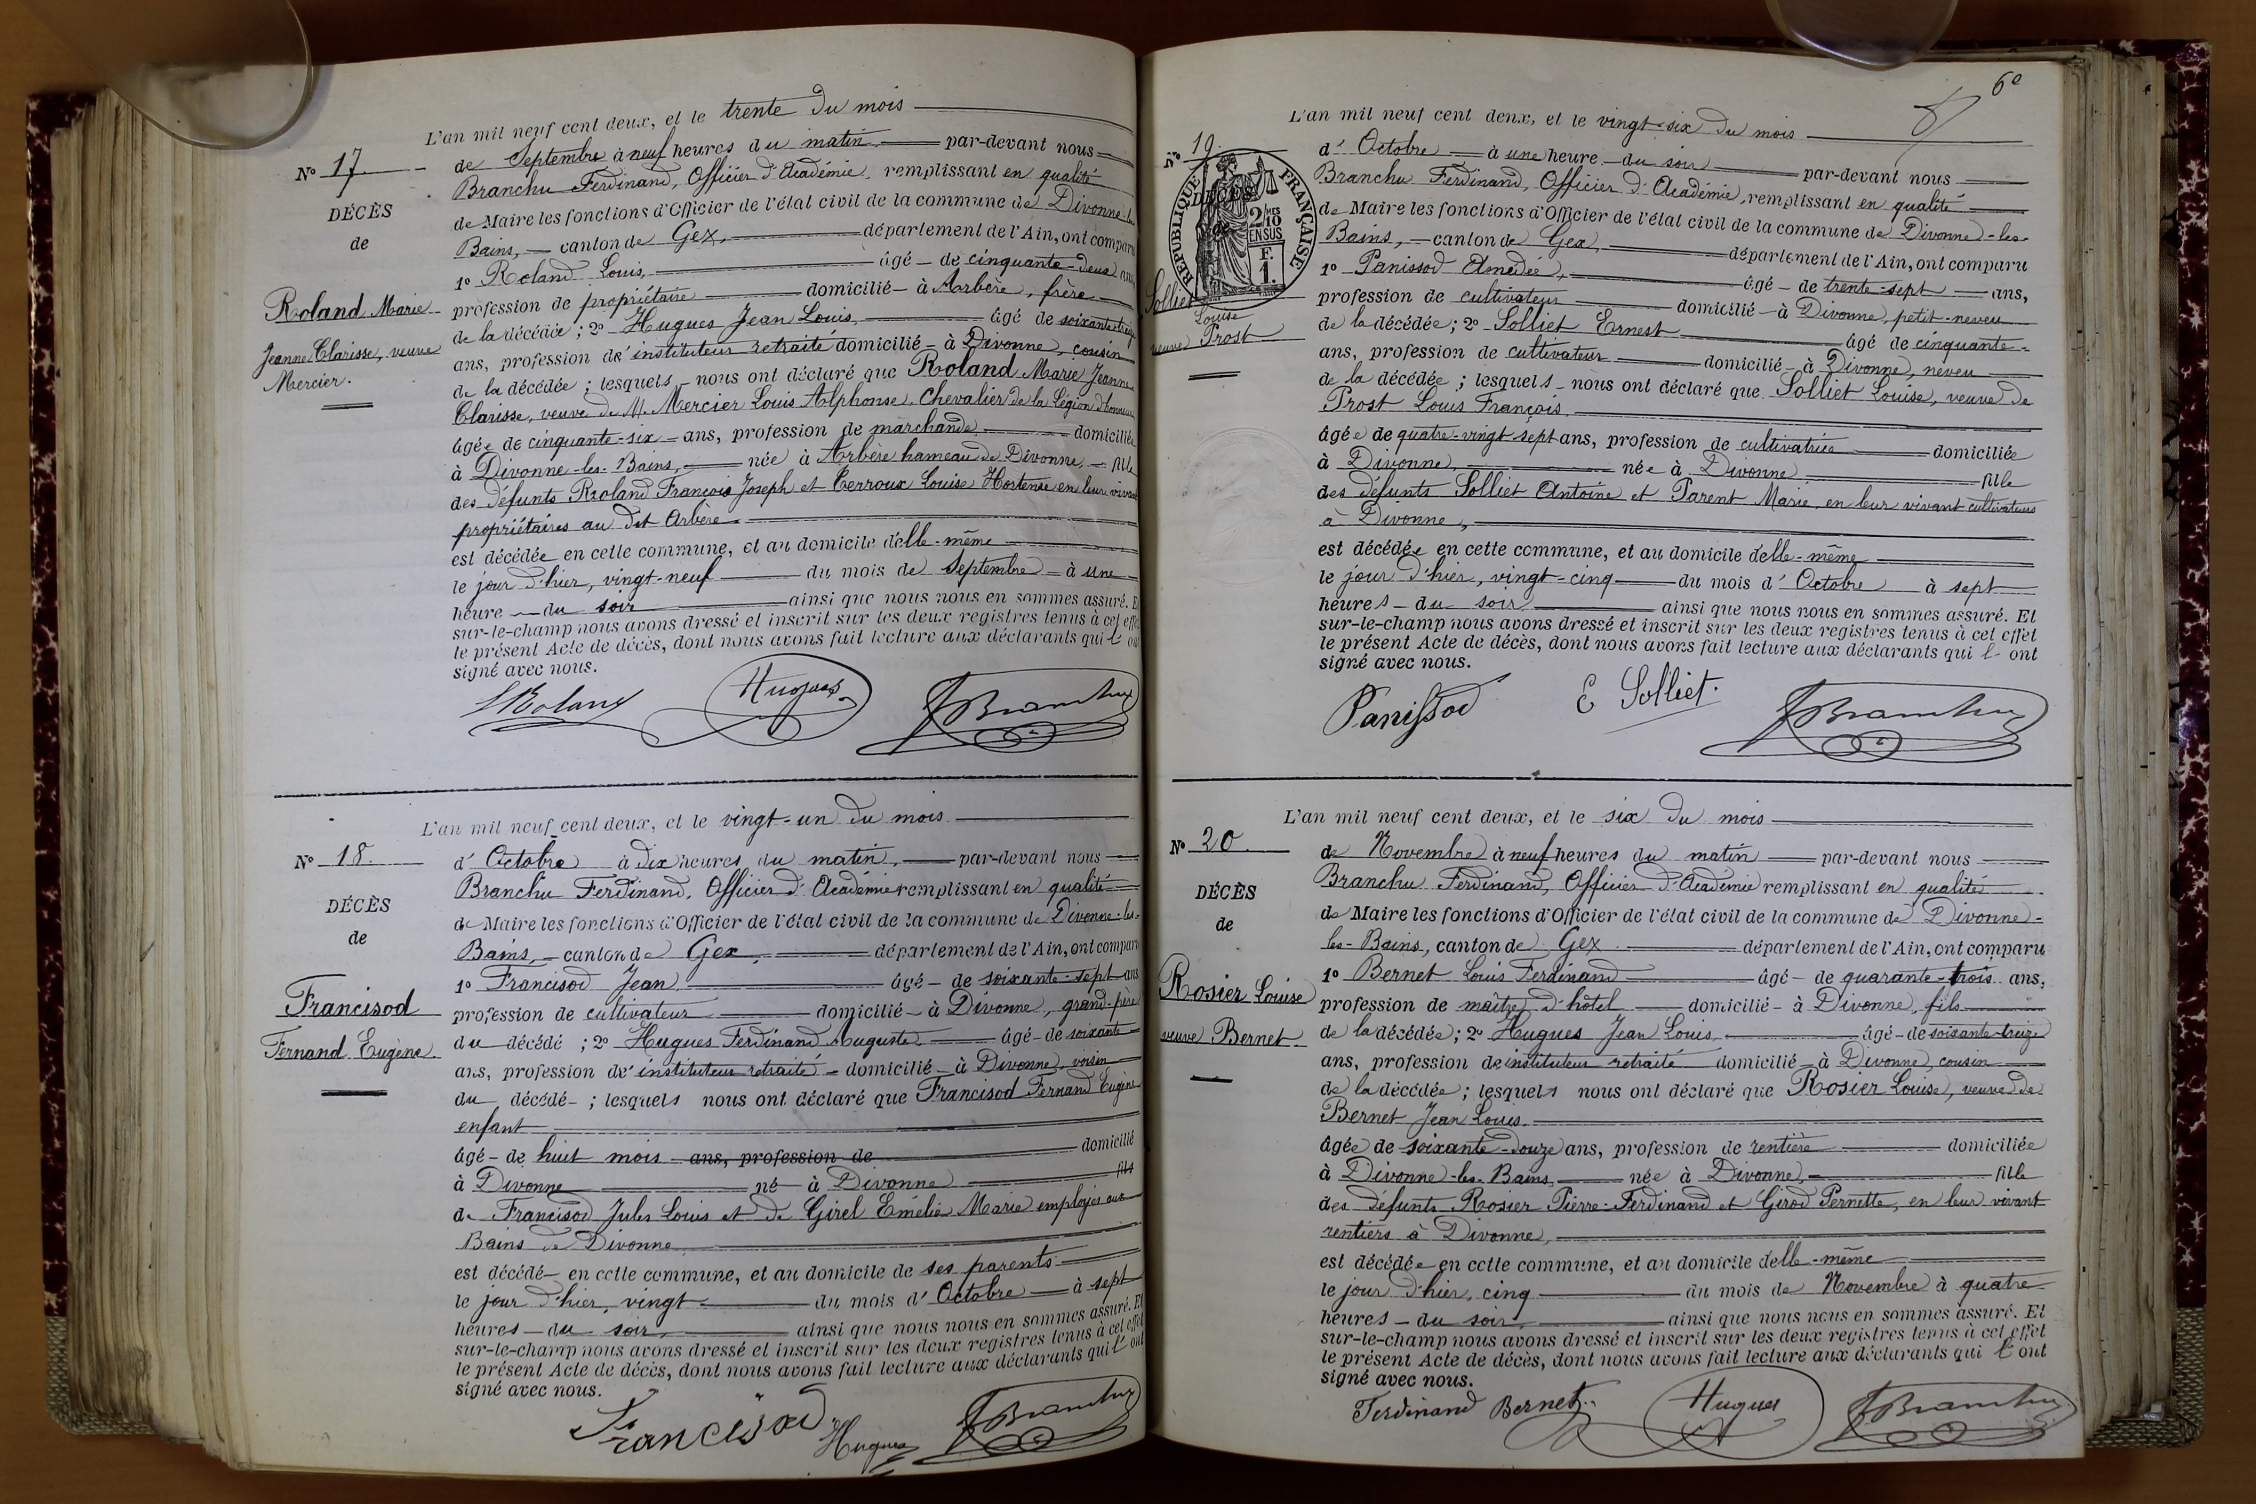 L'an mil neuf cent deux, et le trente du mois
N° 17
de Septembre à neuf heures du matin par-devant nous
Branchu Ferdinand, Officier d'Académie, remplissant en qualité
DÉCÈS
de Maire les fonctions d'Officier de l'état civil de la commune de Divonne-les-
de
Bains, canton de Gex, département de l'Ain, ont comparu
1° Roland Louis, âgé de cinquante-deux ans
Roland Marie
profession de propriétaire domicilié à Arbère, frère
de la décédée ; 2° Hugues Jean Louis, âgé de soixante-treize
Jeanne Clarisse, veuve
ans, profession d'instituteur retraité domicilié à Divonne, cousin
Mercier.
de la décédée ; lesquels nous ont déclaré que Roland Marie Jeanne
Clarisse, veuve de M. Mercier Louis Alphonse, Chevalier de la Légion d'honneur
âgée de cinquante-six ans, profession de marchande domiciliée
à Divonne-les-Bains, née à Arbère hameau de Divonne, fille
des défunts Roland François Joseph et Cerroux Louise Hortense en leur vivant
propriétaires au dit Arbère
est décédée en cette commune, et au domicile d'elle-même
le jour d'hier, vingt-neuf du mois de Septembre à une
heure du soir ainsi que nous nous en sommes assuré. Et
sur-le-champ nous avons dressé et inscrit sur les deux registres tenus à cet effet
le présent Acte de décès, dont nous avons fait lecture aux déclarants qui l'ont
signé avec nous.
L Roland Hugues F Branchu
L'an mil neuf cent deux, et le vingt-un du mois
N° 18.
d'Octobre à dix heures du matin, par-devant nous
Branchu Ferdinand, Officier d'Académie remplissant en qualité
DÉCÈS
de Maire les fonctions d'Officier de l'état civil de la commune de Divonne-les-
de
Bains, canton de Gex, département de l'Ain, ont comparu
1° Francisod Jean âgé de soixante-sept ans
Francisod
profession de cultivateur domicilié à Divonne, grand-père
Fernand Eugène
du décédé ; 2° Hugues Ferdinand Auguste âgé de soixante
ans, profession d'instituteur retraité domicilié à Divonne, voisin
du décédé ; lesquels nous ont déclaré que Francisod Fernand Eugène
enfant
âgé de huit mois ans, profession de domicilié
à Divonne né à Divonne fils
de Francisod Jules Louis et de Girel Emélie Marie employés aux
Bains de Divonne
est décédé en cette commune, et au domicile de ses parents
le jour d'hier, vingt du mois d'Octobre à sept
heures du soir, ainsi que nous nous en sommes assuré. Et
sur-le-champ nous avons dressé et inscrit sur les deux registres tenus à cet effet
le présent Acte de décès, dont nous avons fait lecture aux déclarants qui l'ont
signé avec nous.
Francisod Hugues F Branchu
60
L'an mil neuf cent deux, et le vingt-six du mois
N° 19.
d'Octobre à une heure du soir par-devant nous
RÉPUBLIQUE FRANÇAISE
2/10MES EN SUS
F. 1.
Branchu Ferdinand, Officier d'Académie, remplissant en qualité
DÉCÈS
de Maire les fonctions d'Officier de l'état civil de la commune de Divonne-les-
de
Bains, canton de Gex, département de l'Ain, ont comparu
1° Panissod Amédée, âgé de trente-sept ans,
Solliet
profession de cultivateur domicilié à Divonne, petit-neveu
Louise
de la décédée ; 2° Solliet Ernest âgé de cinquante-
veuve Prost
ans, profession de cultivateur domicilié à Divonne, neveu
de la décédée ; lesquels nous ont déclaré que Solliet Louise, veuve de
Prost Louis François,
âgée de quatre-vingt-sept ans, profession de cultivatrice domiciliée
à Divonne, née à Divonne fille
des défunts Solliet Antoine et Parent Marie, en leur vivant cultivateurs
à Divonne,
est décédée en cette commune, et au domicile d'elle-même
le jour d'hier, vingt-cinq du mois d'Octobre à sept
heures du soir ainsi que nous nous en sommes assuré. Et
sur-le-champ nous avons dressé et inscrit sur les deux registres tenus à cet effet
le présent Acte de décès, dont nous avons fait lecture aux déclarants qui l'ont
signé avec nous.
Panissod E Solliet. F Branchu
L'an mil neuf cent deux, et le six du mois
N° 20.
de Novembre à neuf heures du matin par-devant nous
Branchu Ferdinand, Officier d'Académie remplissant en qualité
DÉCÈS
de Maire les fonctions d'Officier de l'état civil de la commune de Divonne-
de
les-Bains, canton de Gex département de l'Ain, ont comparu
1° Bernet Louis Ferdinand âgé de quarante-trois ans,
Rosier Louise
profession de maître d'hôtel domicilié à Divonne, fils
veuve Bernet
de la décédée ; 2° Hugues Jean Louis, âgé de soixante-treize
ans, profession de instituteur retraité domicilié à Divonne, cousin
de la décédée ; lesquels nous ont déclaré que Rosier Louise, veuve de
Bernet Jean Louis.
âgée de soixante-douze ans, profession de rentière domiciliée
à Divonne-les-Bains née à Divonne, fille
des défunts Rosier Pierre-Ferdinand et Girod Pernette, en leur vivant
rentiers à Divonne,
est décédée en cette commune, et au domicile d'elle-même
le jour d'hier, cinq du mois de Novembre à quatre
heures du soir, ainsi que nous nous en sommes assuré. Et
sur-le-champ nous avons dressé et inscrit sur les deux registres tenus à cet effet
le présent Acte de décès, dont nous avons fait lecture aux déclarants qui l'ont
signé avec nous.
Ferdinand Bernet. Hugues F Branchu